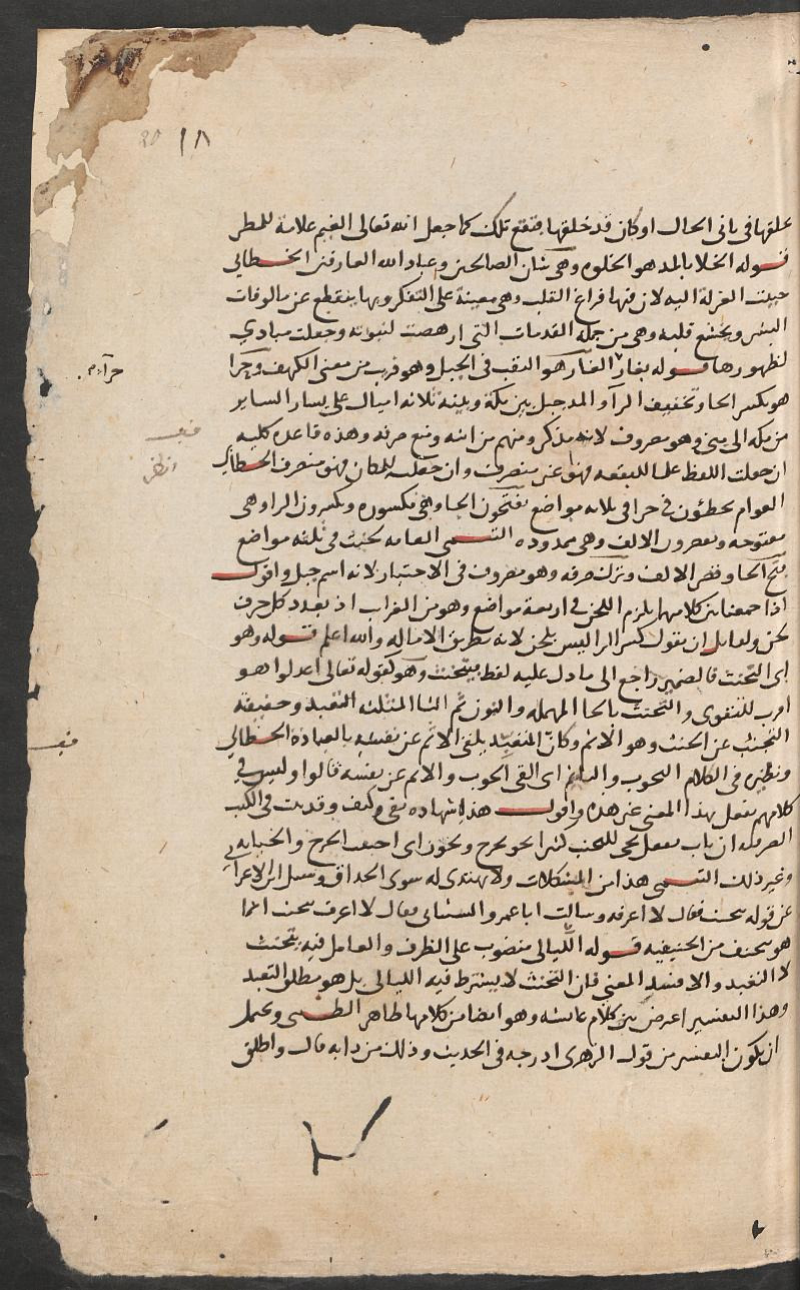 ١٨
علقها في باني الحال او كان قد خلقها فتقع تلك كما جعل الله تعالى الغيم علامة للمطر
قوله الخلا بالمد هو الخلوه وهي شان الصالحين وعباد الله العارفين الخطابي
حببت العزلة اليه لان فيها فراغ القلب وهي معينة على التفكر وبها ينقطع عن مالوفات
البشر ويخشع قلبه وهي من جملة المقدمات التي ارهصت لنبوته وجعلت مبادي
لظهورها قوله بغار الغار هو النقب في الجبل وهو قريب من معنى الكهف وحرا
حرآء
هو بكسر الحا وتخفيف الرآ والمد جبل بين مكة وبينه ثلاثه اميال على يسار الساير
من مكه الى منى وهو مصروف لانه مذكر ومنهم من انثه ومنع صرفه وهذه قاعده كليه
ان جعلت اللفظ علما للبقعه فهو غير منصرف وان جعلته للمكان فهو منصرف الخطابي
العوام يخطئون في حرا في ثلاثه مواضع يفتحون الحا وهي مكسوره ويكسرون الرا وهي
مفتوحه ويقصرون الالف وهي ممدوده التيمي العامه لحنت في ثلثه مواضع
فتح الحا وقصر الالف وترك صرفه وهو مصروف في الاختيار لانه اسم جبل واقول
اذا جمعنا بين كلاميهما يلزم اللحن في اربعة مواضع وهو من الغراب اذ بعدد كل حرف
لحن ولقايل ان يقول كسر الرا ليس بلحن لانه بطريق الاماله والله اعلم قوله وهو
اى التحنث فالضمير راجع الى ما دل عليه لفظ فيتحنث وهو كقوله تعالى اعدلوا هو
اقرب للتقوى والتحنث بالحا المهمله والنون ثم الثا المثلثه التعبد وحقيقته
التجنب عن الحنث وهو الاثم وكان المتعبد يلقى الاثم عن نفسه بالعباده الخطابي
ونظيره في الكلام التحوب والتاثم اى القى الحوب والاثم عن نفسه قالوا وليس في
كلامهم تفعل بهذا المعنى غير هذه واقول هذه شهاده نفى وكيف وقد ثبت في الكتب
الصرفيه ان باب تفعل يجي للتجنب كثيرا نحو تحرج وتخون اى اجتنب الحرج والخيانه
وغير ذلك التيمي هذا من المشكلات ولا يهتدى له سوى الحذاق وسيل ابن الاعرابي
عن قوله يتحنث فقال لا اعرفه وسالت ابا عمرو الشيباني فقال لا اعرف يتحنث انما
هو يتحنف من الحنيفيه قوله الليالي منصوب على الظرف والعامل فيه يتحنث
لا التعبد والا لفسد المعنى فان التحنث لا يشترط فيه الليالي بل هو مطلق التعبد
وهذا التفسير اعترض بين كلام عائشه وهو ايضا من كلامها ظاهرا الطيبي ويحتمل
ان يكون التفسير من قول الزهرى ادرجه في الحديث وذلك من دابه قال واطلق